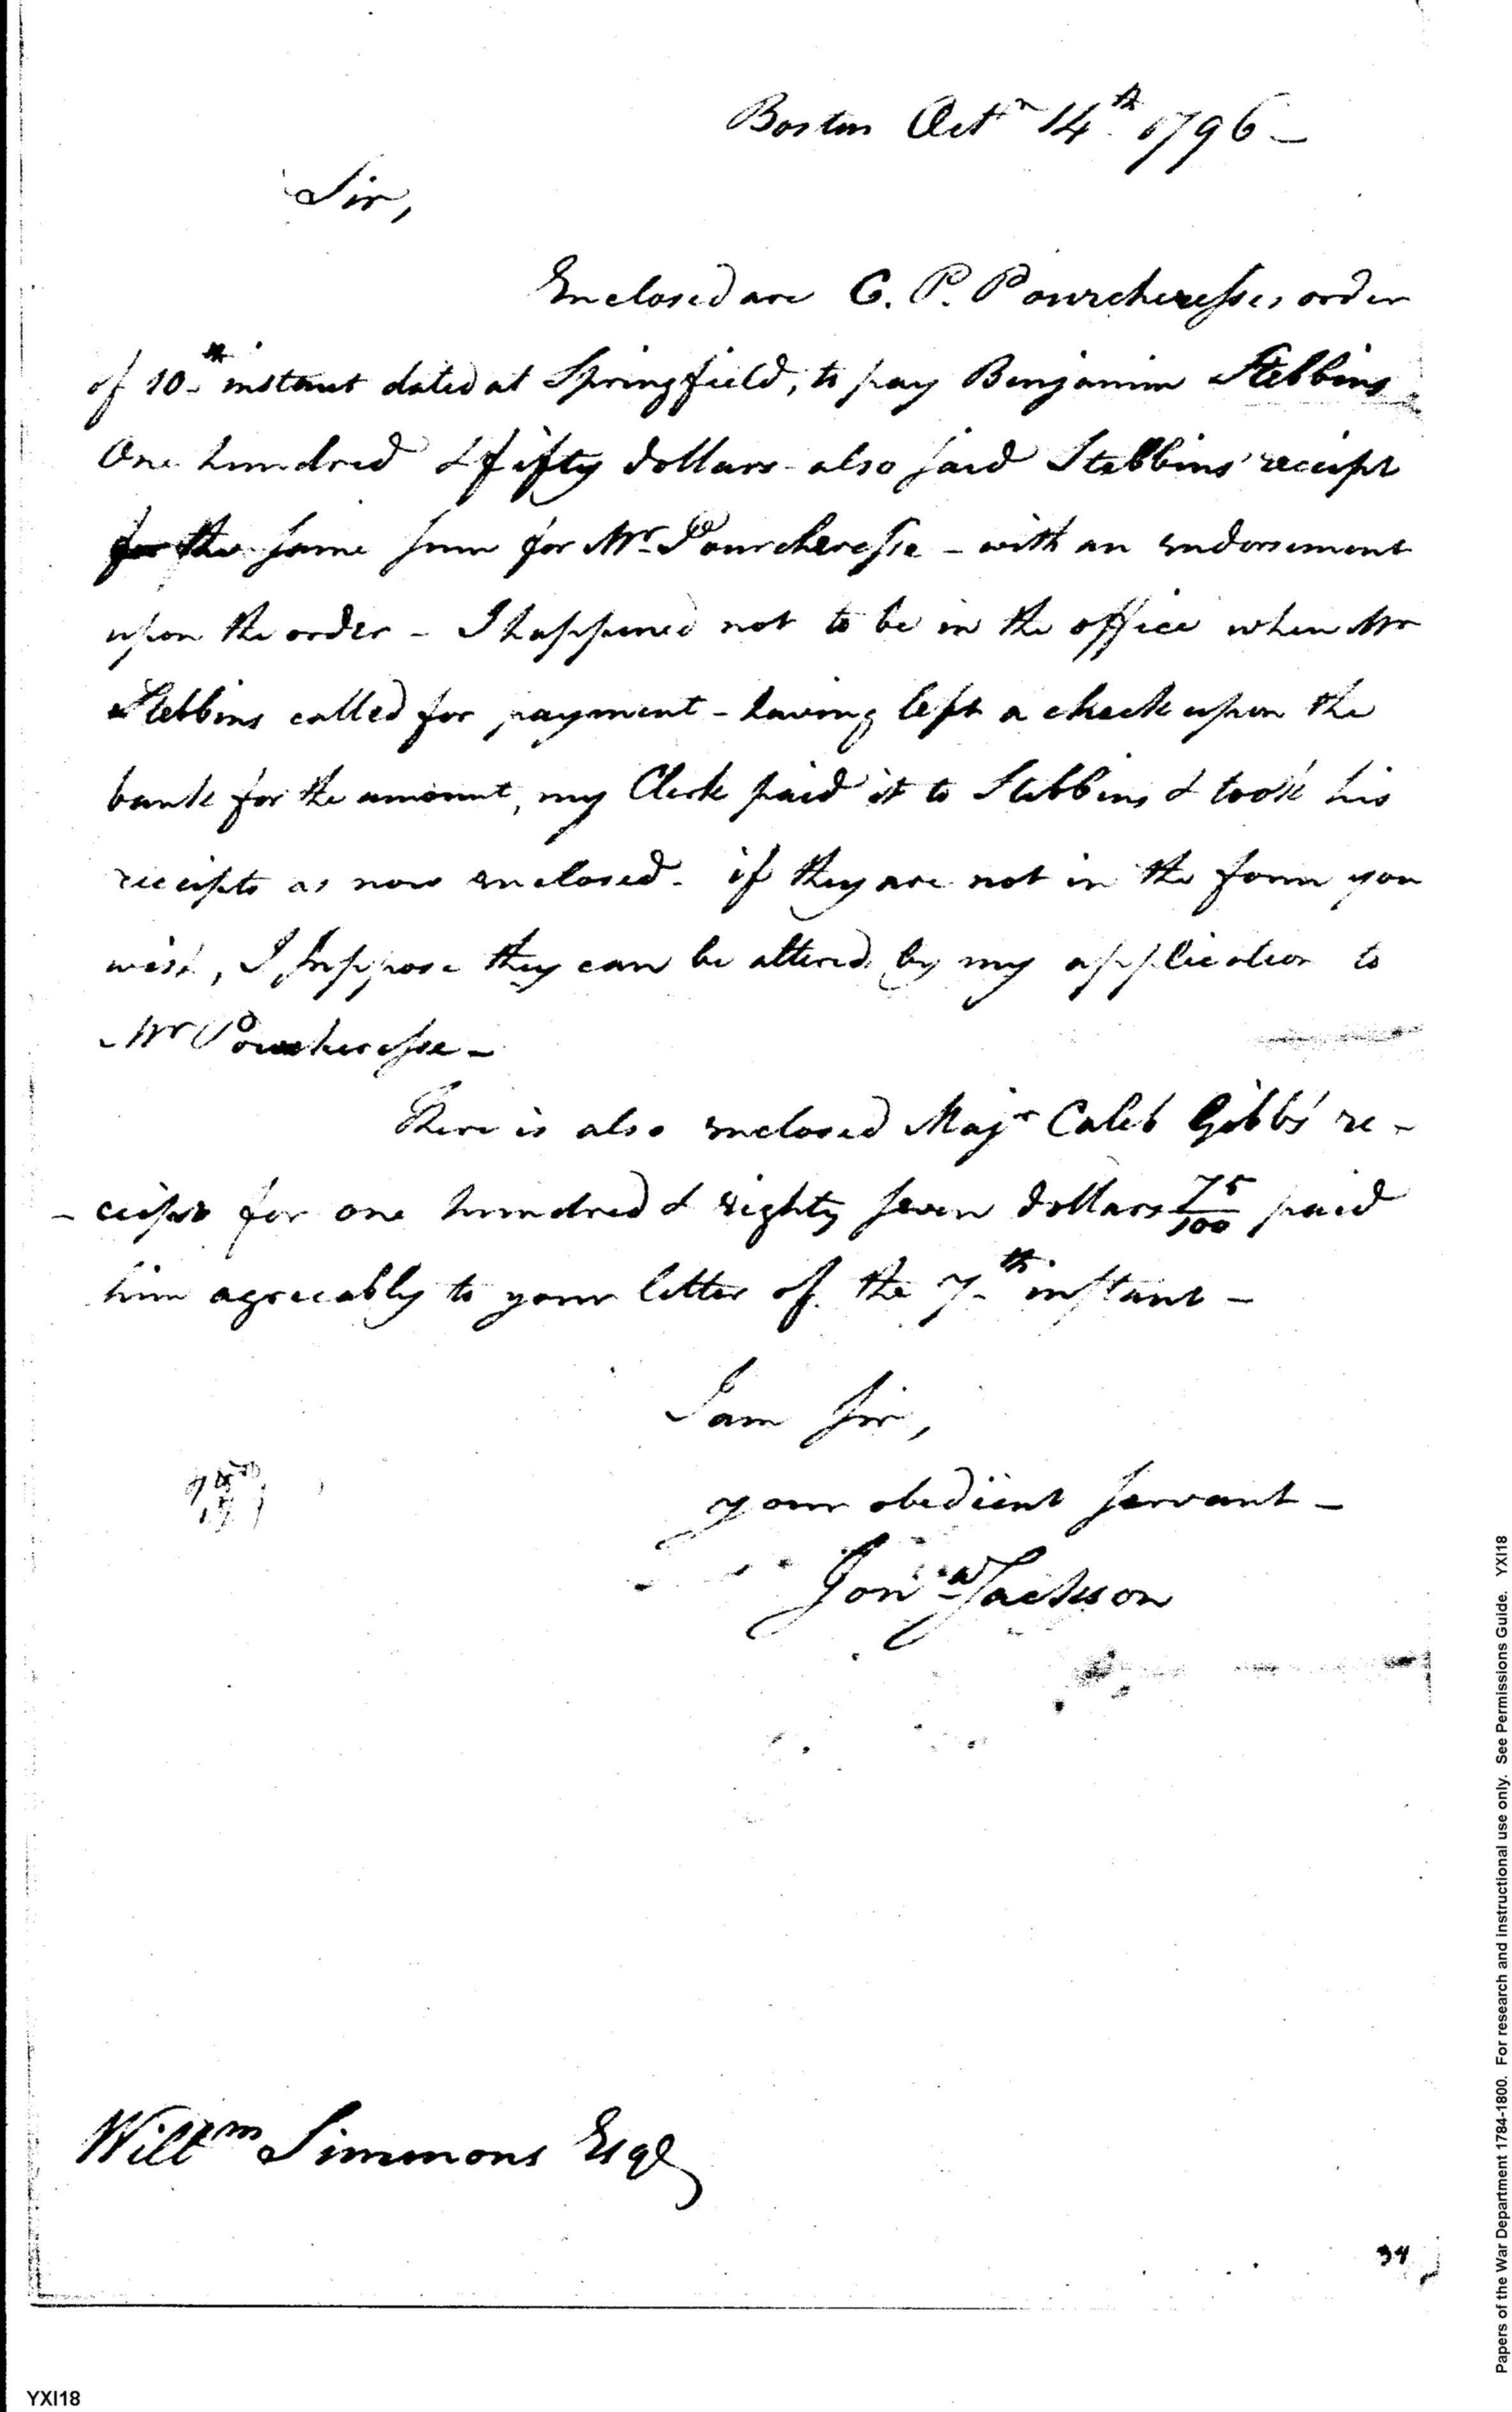 Boston Octr 14th 1796 —
Sir,
Enclosed are C. P. Pourcheresses order
of 10th instant dated at Springfield, to pay Benjamin Stebbins
One hundred & fifty dollars also said Stebbins' receipt
for the same sum for Mr Pourcheresse – with an endorsement
upon the order – I happened not to be in the office when Mr
Stebbins called for payment – having left a check upon the
bank for the amount, my Clerk paid it to Stebbins & took his
receipts as now enclosed – if they are not in the form you
wish, I suppose they can be altered by my application to
Mr Pourcheresse –
There is also enclosed Majr Caleb Gibbs' re-
-ceipt for one hundred & eighty seven dollars 75/100 paid
him agreeably to your letter of the 7th instant –
I am Sir,
your obedient servant –
Jona Jackson
Willm Simmons Esqr
34
YXI18
Papers of the War Department 1784-1800. For research and instructional use only. See Permissions Guide. YXI18